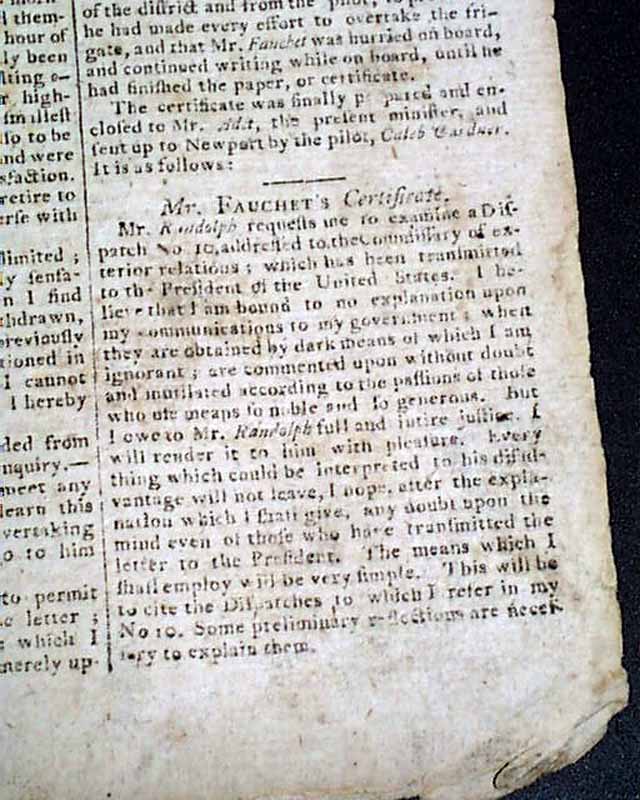 them-
hour of
ly been
sting e-
r high-
smallest
also to be
and were
sfaction.
retire to
erse with
limited ;
ly sensa-
n I find
thdrawn,
previously
tioned in
I cannot
I hereby
ded from
nquiry.—
meet any
learn this
vertaking
o to him
to permit
e letter ;
which I
merely up-
of the district and from the pilot, to
he had made every effort to overtake the fri-
gate, and that Mr. Fauchet was hurried on board,
and continued writing while on board, until he
had finished the paper, or certificate.
The certificate was finally p pared and en-
closed to Mr. Adet, the present minister, and
sent up to Newport by the pilot, Caleb Gardner.
It is as follows:
Mr. FAUCHET'S Certificate.
Mr. Randolph requests me to examine a Dis-
patch No. 10, addressed to the Commissary of ex-
terior relations ; which has been transmitted
to the President of the United States. I be-
lieve that I am bound to no explanation upon
my communications to my government ; when
they are obtained by dark means of which I am
ignorant ; are commented upon without doubt
and mutilated according to the passions of those
who use means so noble and so generous. But
I owe to Mr. Randolph full and intire justice. I
will render it to him with pleasure. Every
thing which could be interpreted to his disad-
vantage will not leave, I hope, after the expla-
nation which I shall give, any doubt upon the
mind even of those who have transmitted the
letter to the President. The means which I
shall employ will be very simple. This will be
to cite the Dispatches to which I refer in my
No 10. Some preliminary reflections are neces-
sary to explain them.